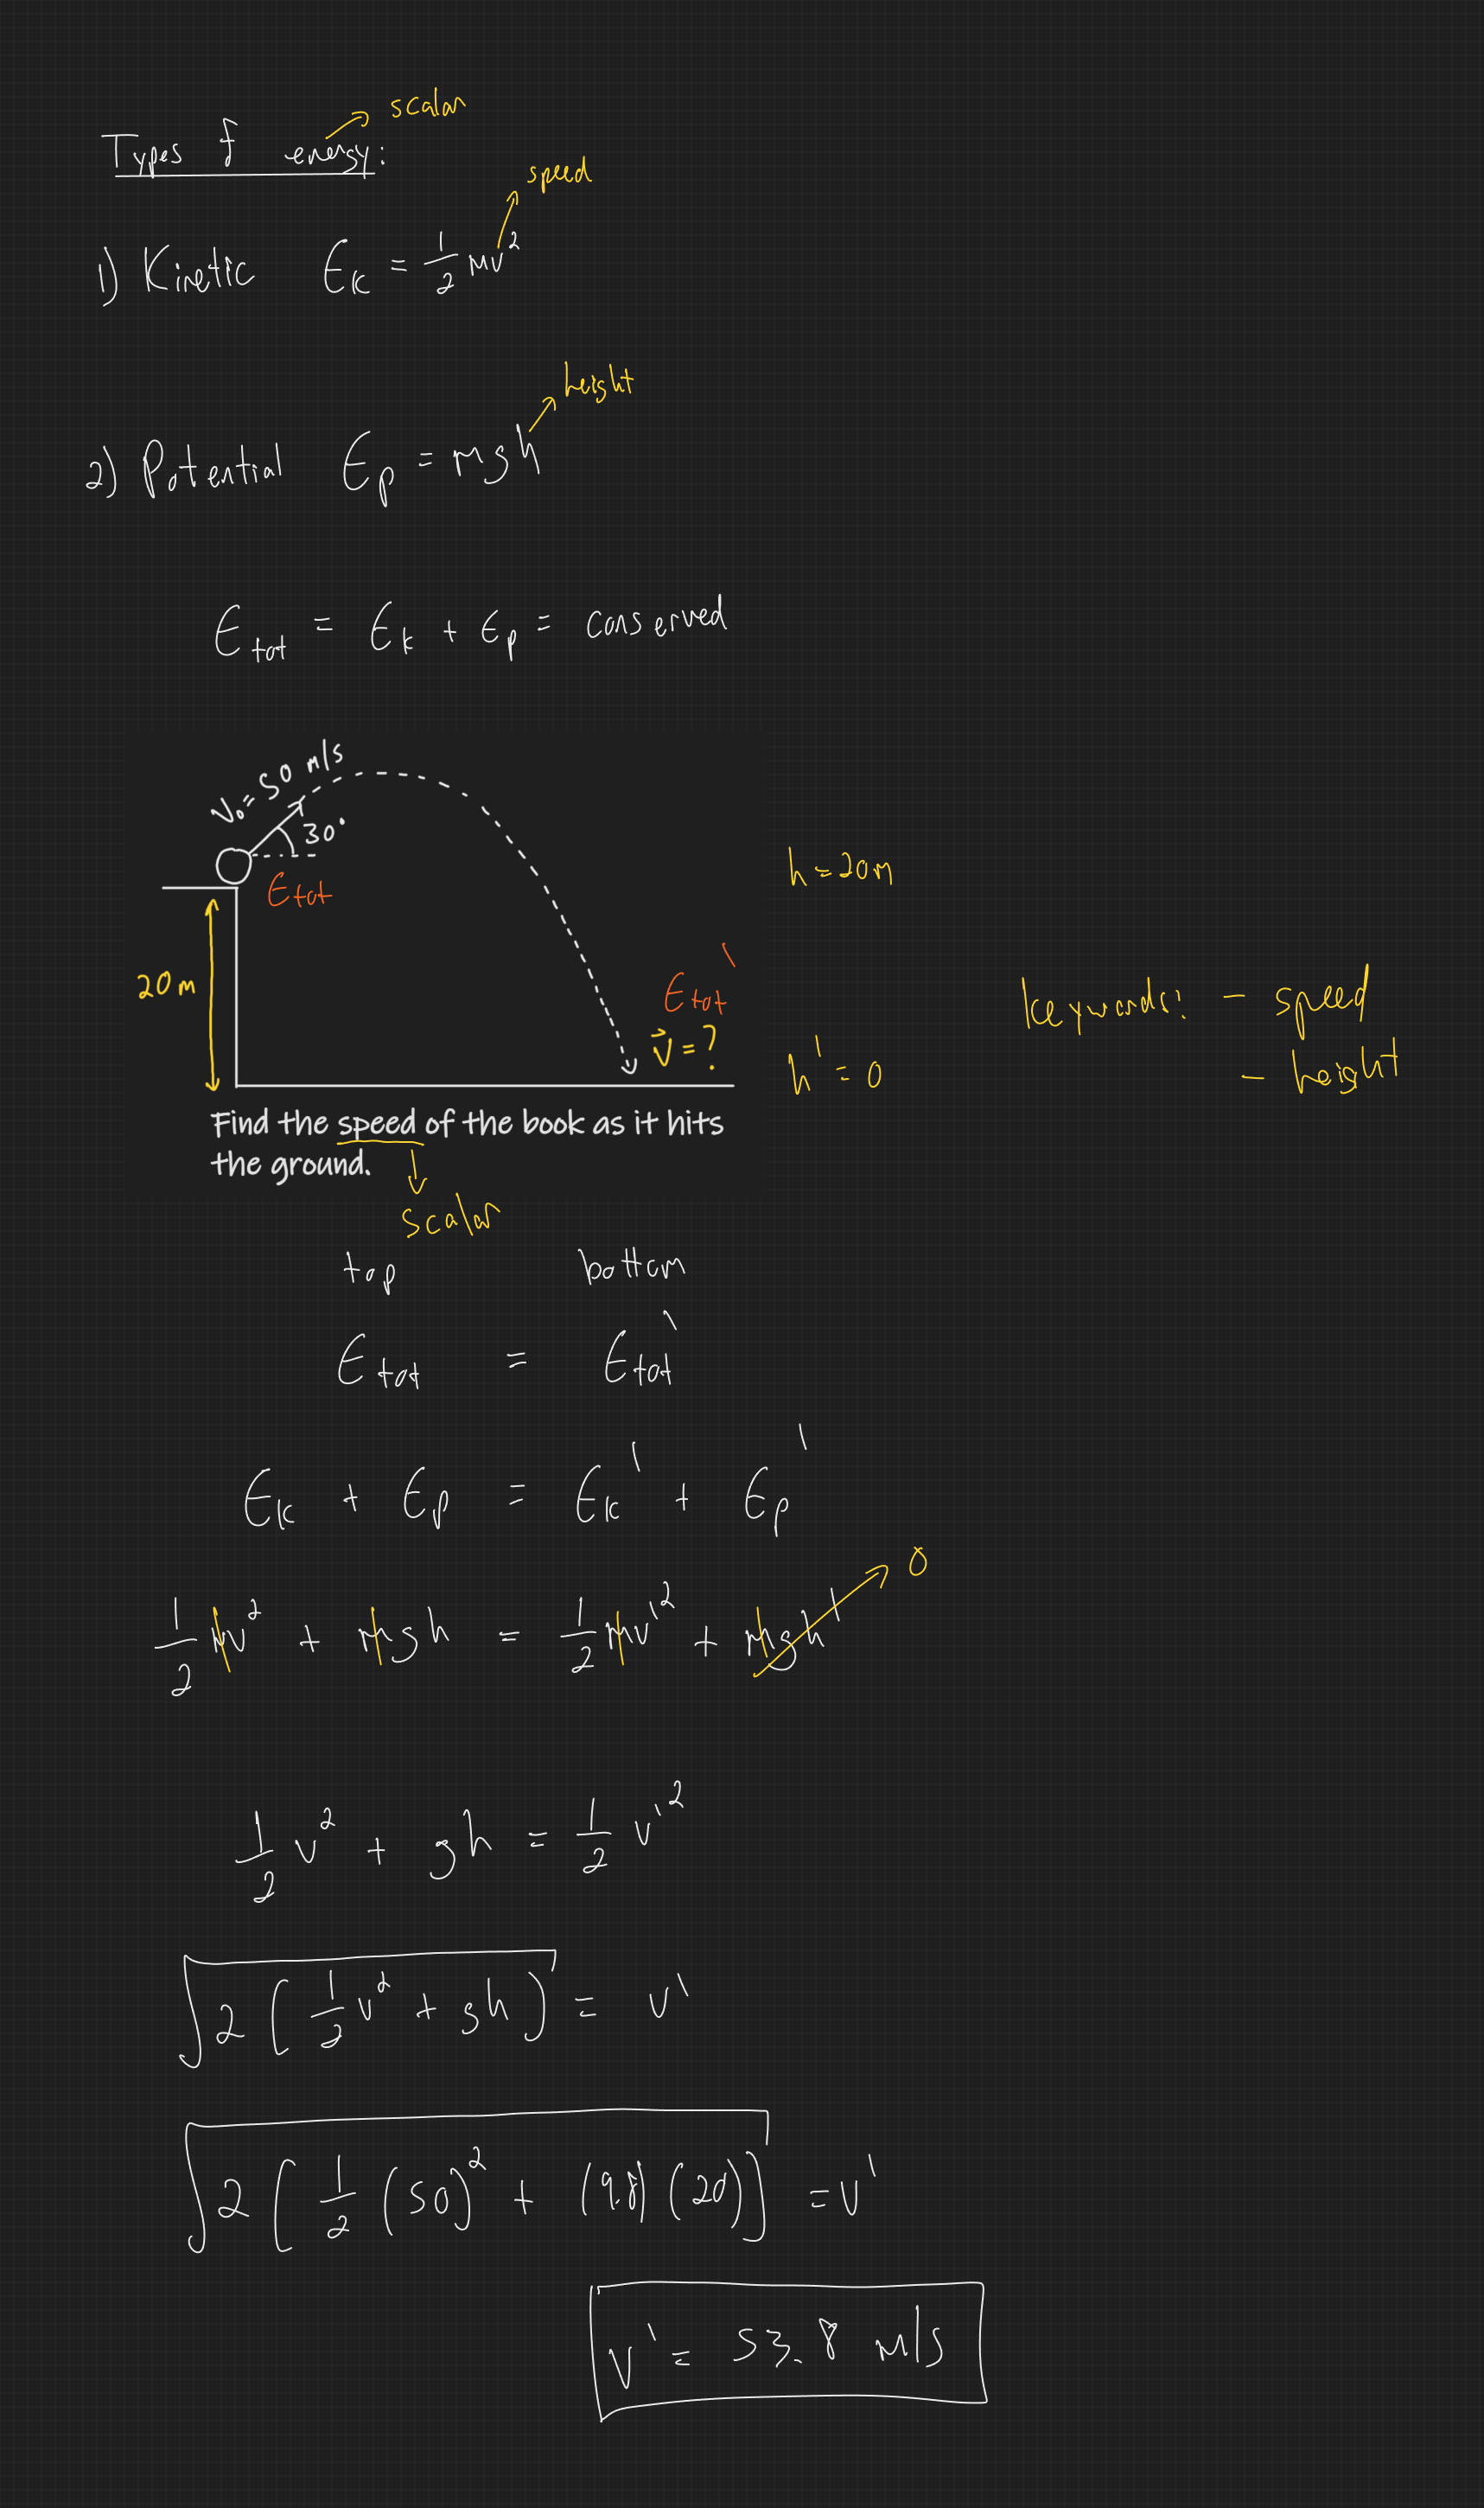 Types of energy: → scalar
1) Kinetic E_k = 1/2 mv² → speed
2) Potential E_p = mgh → height
E_tot = E_k + E_p = conserved
V₀ = 50 m/s
30°
E_tot
h = 20m
20 m
E_tot'
keywords: - speed
v⃗ = ?
h' = 0
- height
Find the speed of the book as it hits
the ground.
scalar
top bottom
E_tot = E_tot'
E_k + E_p = E_k' + E_p'
1/2 mv² + mgh = 1/2 mv'² + mgh' → 0
1/2 v² + gh = 1/2 v'²
√(2(1/2 v² + gh)) = v'
√(2[1/2 (50)² + (9.8)(20)]) = v'
v' = 53.8 m/s